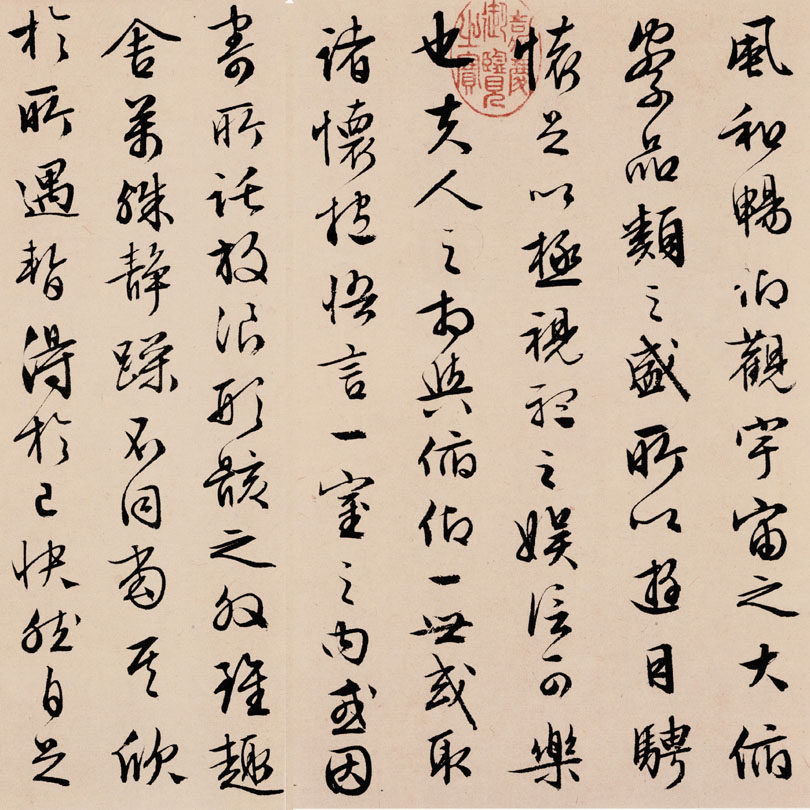 風和暢仰觀宇宙之大俯
察品類之盛所以遊目騁
懷足以極視聽之娛信可樂
也夫人之相與俯仰一世或取
諸懷抱悟言一室之內或因
寄所託放浪形骸之外雖趣
舍萬殊靜躁不同當其欣
於所遇暫得於己快然自足
嘉慶御覽之寶